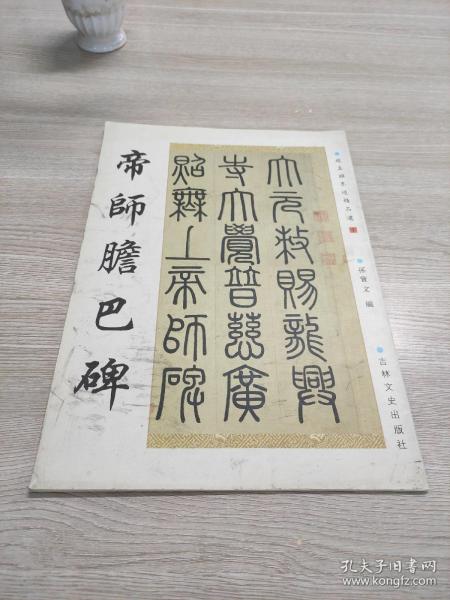 帝師膽巴碑
大元敕賜龍興
寺大覺普慈廣
照無上帝師碑
趙孟頫墨迹精品選
孫寶文 編
吉林文史出版社
孔夫子旧书网
www.kongfz.com